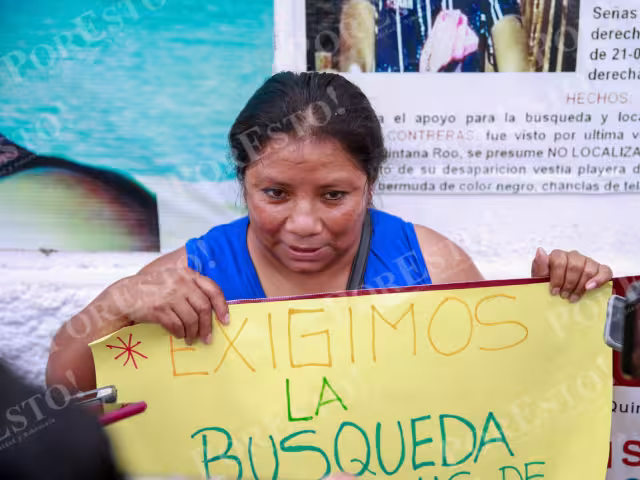 Señas
derech
de 21-0
derecha
HECHOS:
el apoyo para la búsqueda y loca
CONTRERAS, fue visto por ultima v
intana Roo, se presume NO LOCALIZA
to de su desaparicion vestia playera d
bermuda de color negro, chanclas de tel
* EXIGIMOS
LA
BUSQUEDA
DE
Quin
S
PorEsto!